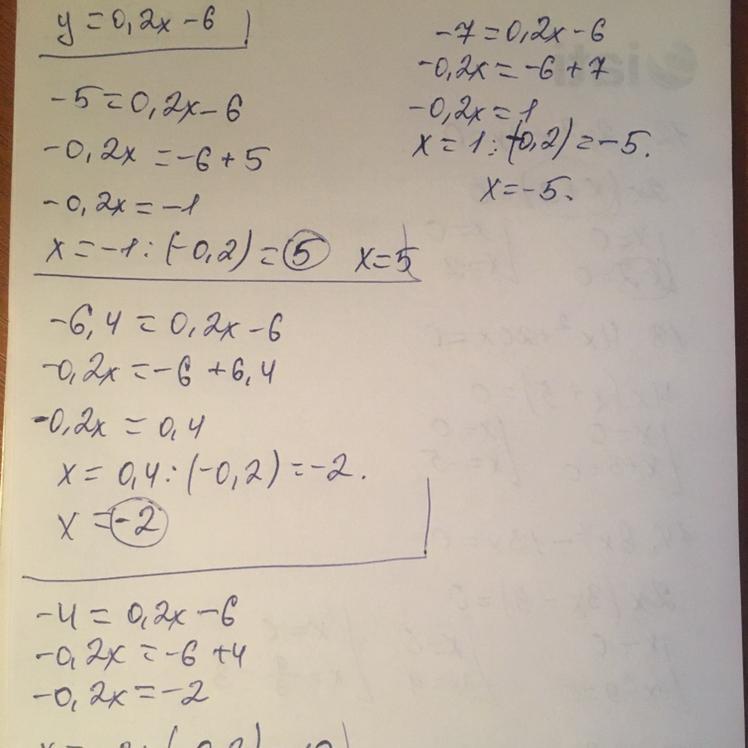 y = 0,2x - 6
-5 = 0,2x - 6
-0,2x = -6 + 5
-0,2x = -1
x = -1 : (-0,2) = 5 x = 5
-6,4 = 0,2x - 6
-0,2x = -6 + 6,4
-0,2x = 0,4
x = 0,4 : (-0,2) = -2.
x = -2
-4 = 0,2x - 6
-0,2x = -6 + 4
-0,2x = -2
-7 = 0,2x - 6
-0,2x = -6 + 7
-0,2x = 1
x = 1 : (-0,2) = -5.
x = -5.